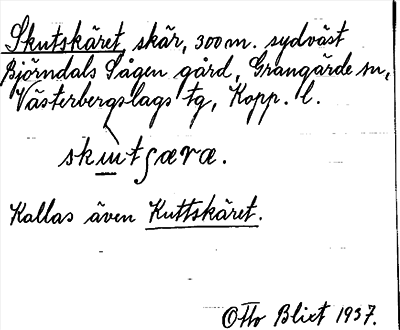 Skutskäret, skär, 300 m. sydväst
Björndals Sågen gård, Grangärde sn,
Västerbergslags tg, Kopp. l.
skɯtʃæra.
Kallas även Kuttskäret.
Otto Blixt 1937.